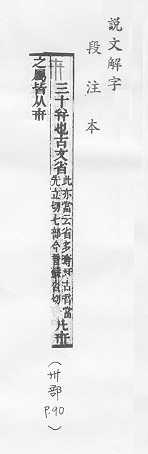 說文解字
段注本
卅
三十幷也古文省
此亦當云省多
先立切七部今音蘇沓切
凡卅
之屬皆从卅
(卅部
P.90)